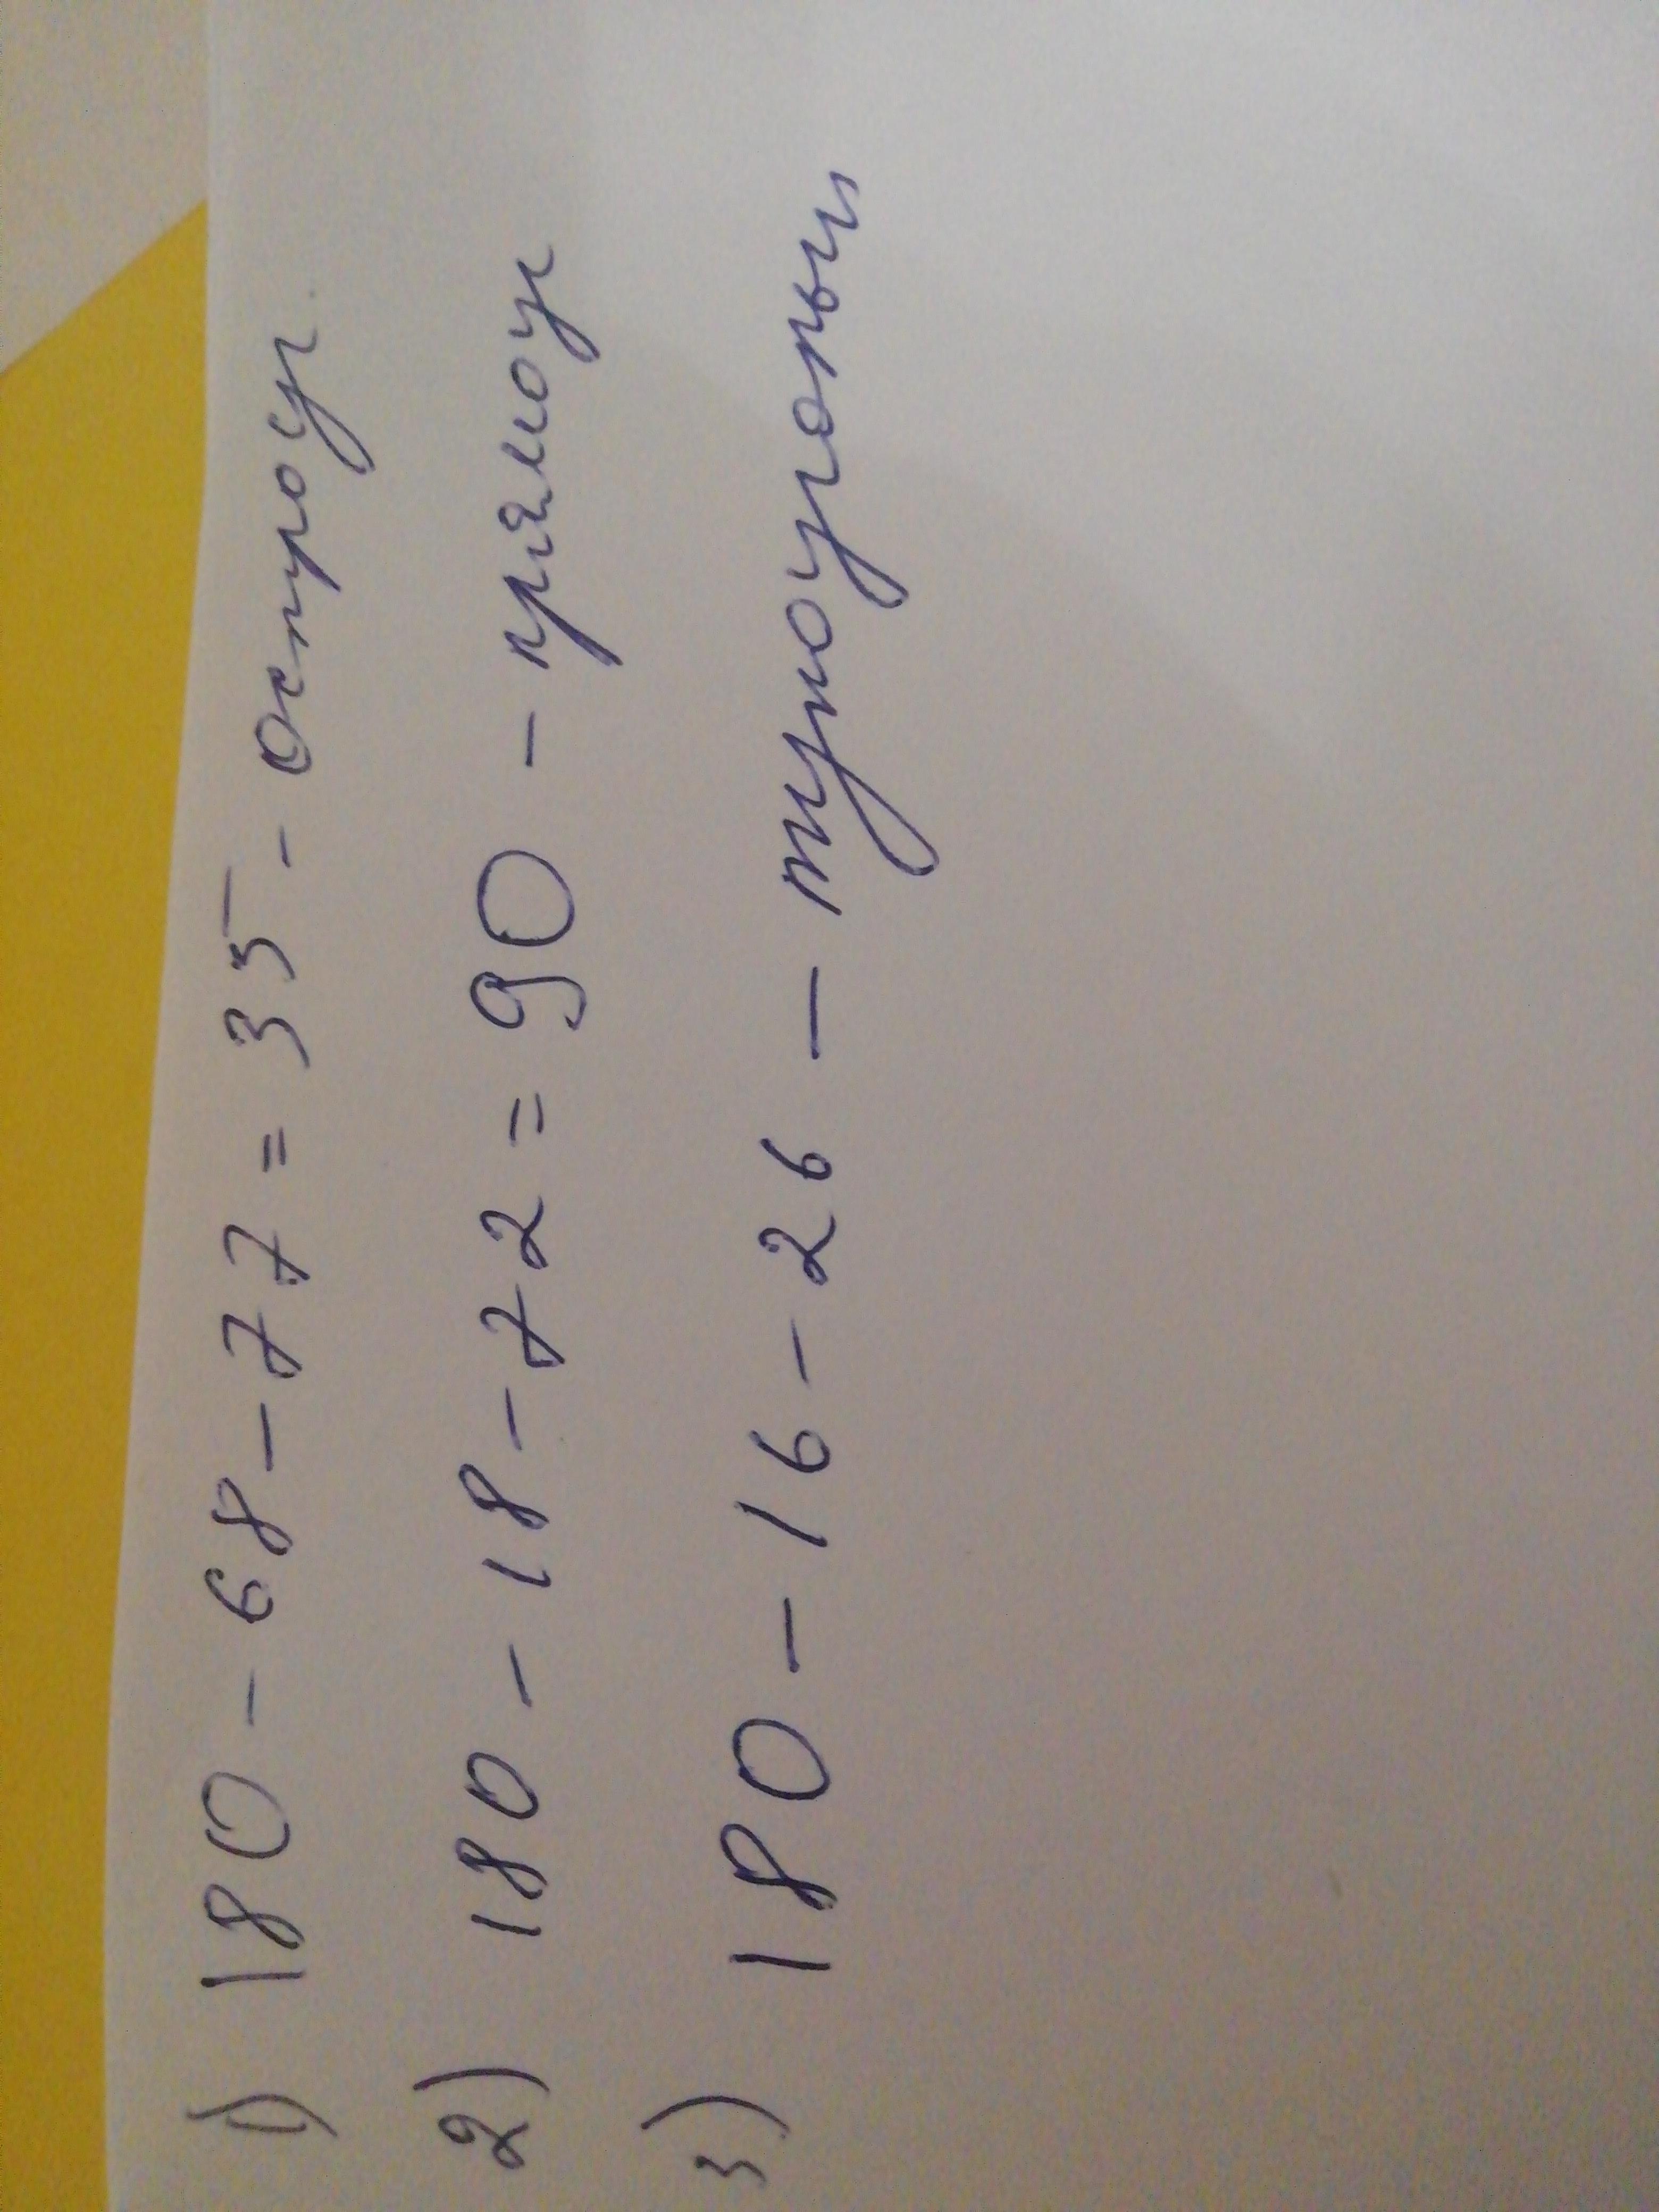 1) 180 - 68 - 77 = 35 - остроуг
2) 180 - 18 - 72 = 90 - прямоуг
3) 180 - 16 - 26 - тупоугольн